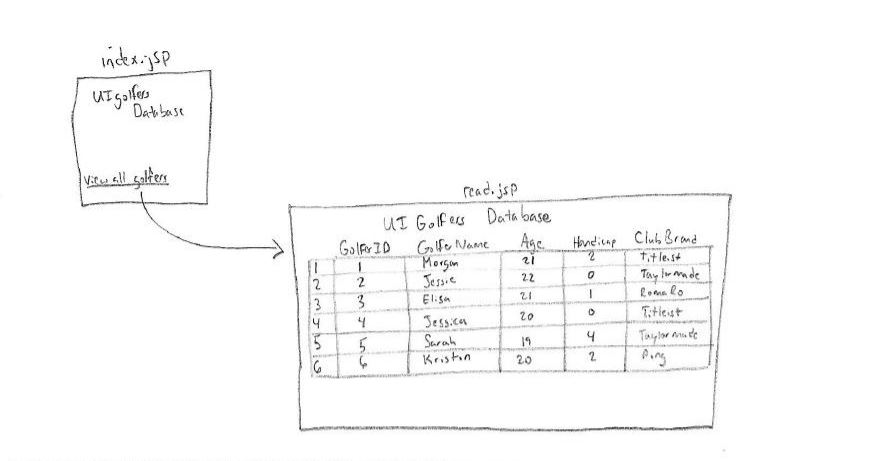 index.jsp
UI golfers
Database
View all golfers
read.jsp
UI Golfers Database
GolferID Golfer Name Age Handicap Club Brand
1 1 Morgan 21 2 Titleist
2 2 Jessie 22 0 Taylormade
3 3 Elisa 21 1 Romaro
4 4 Jessica 20 0 Titleist
5 5 Sarah 19 4 Taylormade
6 6 Kristin 20 2 Ping